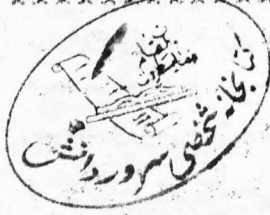 کتابخانه شخصی سرور دانش